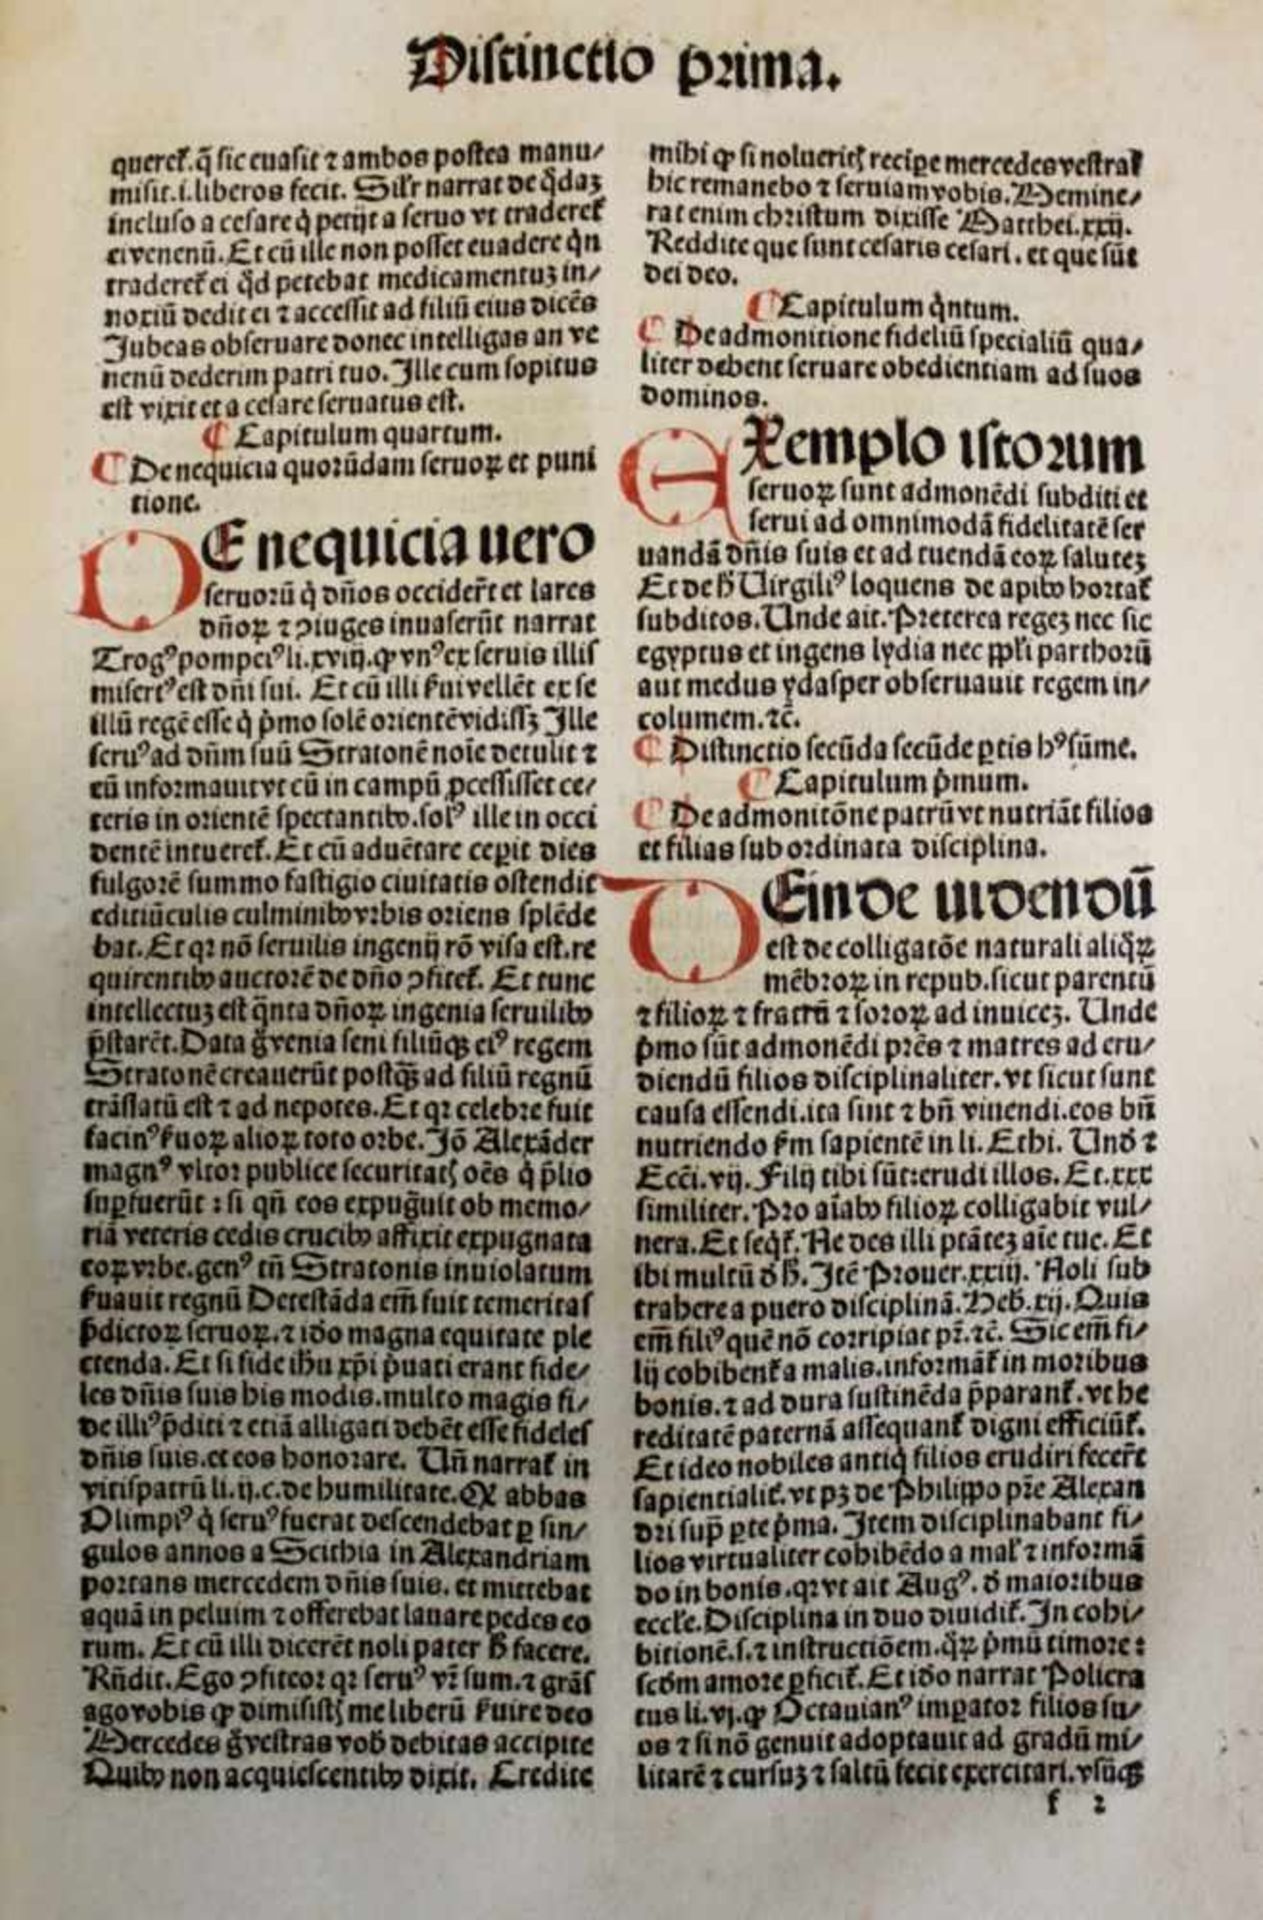 Distinctio prima.
queret᷑.q̄ sic euasit ⁊ ambos postea manu/
misit.i.liberos fecit. Sil'r narrat de q̇daꝫ
incluso a cesare q̇ petijt a seruo vt traderet᷑
ei venenū. Et cū ille non posset euadere q̇n
traderet᷑ ei q̇d petebat medicamentuꝫ in/
noxiū dedit ei ⁊ accessit ad filiū eius dicēs
Jubeas obseruare donec intelligas an ve
nenū dederim patri tuo. Ille cum sopitus
est vixit et a cesare seruatus est.
¶ Capitulum quartum.
¶ De nequicia quorūdam seruoꝝ et puni
tione.
DE nequicia uero
seruorū q̇ dn̄os occider̄t et lares
dn̄oꝝ ⁊ ꝯiuges inuaserūt narrat
Trogꝰ pompeiꝰ li.xviij.ꝙ vnꝰ ex seruis illis
misertꝰ est dn̄i sui. Et cū illi ẜui vellēt ex se
illū regē esse q̇ ṗmo solē orientē vidissꝫ Ille
seruꝰ ad dn̄m suū Stratonē noīe detulit ⁊
eū informauit vt cū in campū ꝓcessisset ce/
teris in orientē spectantibꝰ.solꝰ ille in occi
dentē intueret᷑. Et cū aduētare cepit dies
fulgorē summo fastigio ciuitatis ostendit
editiūculis culminibꝰ vrbis oriens splēde
bat. Et qꝛ nō seruilis ingenij rō visa est.re
quirentibꝰ auctorē de dn̄o ꝯfitet᷑. Et tunc
intellectuꝫ est q̄nta dn̄oꝝ ingenia seruilibꝰ
p̄starēt. Data ḡ venia seni filiūqꝫ eiꝰ regem
Stratonē creauerūt postq̄ꝫ ad filiū regnū
trāslatū est ⁊ ad nepotes. Et qꝛ celebre fuit
facinꝰ ẜuoꝝ alioꝝ toto orbe. Jō Alexāder
magnꝰ vltor publice securitatꝭ oēs q̇ p̄lio
suꝑfuerūt : si qn̄ eos expugͣuit ob memo/
riā veteris cedis crucibꝰ affixit expugnata
eoꝝ vrbe.genꝰ tn̄ Stratonis inuiolatum
ẜuauit regnū Detestāda em̄ fuit temeritas
p̄dictoꝝ seruoꝝ.⁊ iꝺo magna equitate ple
ctenda. Et si fide ihū xp̄i p̄uati erant fide/
les dn̄is suis his modis.multo magis fi/
de illiꝰ p̄diti ⁊ etiā alligati debēt esse fideles
dn̄is suis.et eos honorare. Un̄ narrat᷑ in
vitispatrū li.ij.c.de humilitate.Qꝫ abbas
Olimpiꝰ q̇ seruꝰ fuerat descendebat ꝑ sin/
gulos annos a Scithia in Alexandriam
portans mercedem dn̄is suis. et mittebat
aquā in peluim ⁊ offerebat lauare pedes eo
rum. Et cū illi dicerēt noli pater h̄ facere.
Rn̄dit. Ego ꝯfiteor qꝛ seruꝰ vr̄ sum.⁊ grās
ago vobis ꝙ dimisistꝭ me liberū ẜuire deo
Mercedes ḡ vestras vob̄ debitas accipite
Quibꝰ non acquiescentibꝰ dixit. Credite
mihi ꝙ si nolueritꝭ recipe mercedes vestras
hic remanebo ⁊ seruiam vobis. Memine/
rat enim christum dixisse Matthei.xxij.
Reddite que sunt cesaris cesari. et que sūt
dei deo.
¶ Capitulum q̇ntum.
¶ De admonitione fideliū specialiū qua/
liter debent seruare obedientiam ad suos
dominos.
EXemplo istorum
seruoꝝ sunt admonēdi subditi et
serui ad omnimodā fidelitatē ser
uandā dn̄is suis et ad tuendā eoꝝ saluteꝫ
Et de h̄ Uirgiliꝰ loquens de apibꝰ hortat᷑
subditos. Unde ait. Preterea regeꝫ nec sic
egyptus et ingens lydia nec ppl'i parthorū
aut medus ydasper obseruauit regem in/
columem.⁊c̄.
¶ Distinctio secūda secūde ꝑtis hꝰ sūme.
¶ Capitulum ṗmum.
¶ De admonitōne patrū vt nutriāt filios
et filias sub ordinata disciplina.
DEinde uidendū
est de colligatōe naturali aliq̇ꝝ
mēbroꝝ in repub.sicut parentū
⁊ filioꝝ ⁊ fratrū ⁊ soroꝝ ad inuiceꝫ. Unde
ṗmo sūt admonēdi pr̄es ⁊ matres ad eru/
diendū filios disciplinaliter.vt sicut sunt
causa essendi.ita sint ⁊ bn̄ viuendi.eos bn̄
nutriendo ẜm sapientē in li. Ethi. Unꝺ ⁊
Ecci.vij. Filij tibi sūt:erudi illos. Et.xxx
similiter. Pro aīabꝰ filioꝝ colligabit vul/
nera. Et seq̇t᷑. Ne des illi ptāteꝫ aīe tue. Et
ibi multū ꝺ h̄. Itē Prouer.xxiij. Noli sub
trahere a puero disciplinā. Heb̄.xij. Quis
em̄ filiꝰ quē nō corripiat pr̄. ⁊c̄. Sic em̄ fi/
lij cohibent᷑ a malis.informāt᷑ in moribus
bonis.⁊ ad dura sustinēda p̄parant᷑.vt he
reditatē paternā assequant᷑ digni efficiūt᷑.
Et ideo nobiles antiq̇ filios erudiri fecer̄t
sapientialit᷑.vt pꝫ de Philippo pr̄e Alexan
dri sup̄ ꝑte ṗma. Item disciplinabant fi/
lios virtualiter cohibēdo a mal' ⁊ informā
do in bonis.qꝛ vt ait Augꝰ. ꝺ maioribus
eccl'e. Disciplina in duo diuidit᷑. In cohi/
bitionē.s.⁊ instructiōem.q̇ꝝ ṗmū timore:
scꝺm amore ꝑficit᷑. Et iꝺo narrat Policra
tus li.vj.ꝙ Octauianꝰ imꝑator filios su/
os ⁊ si nō genuit adoptauit ad gradū mi/
litarē ⁊ cursuꝫ ⁊ saltū fecit exercitari.vsūqꝫ
f 2